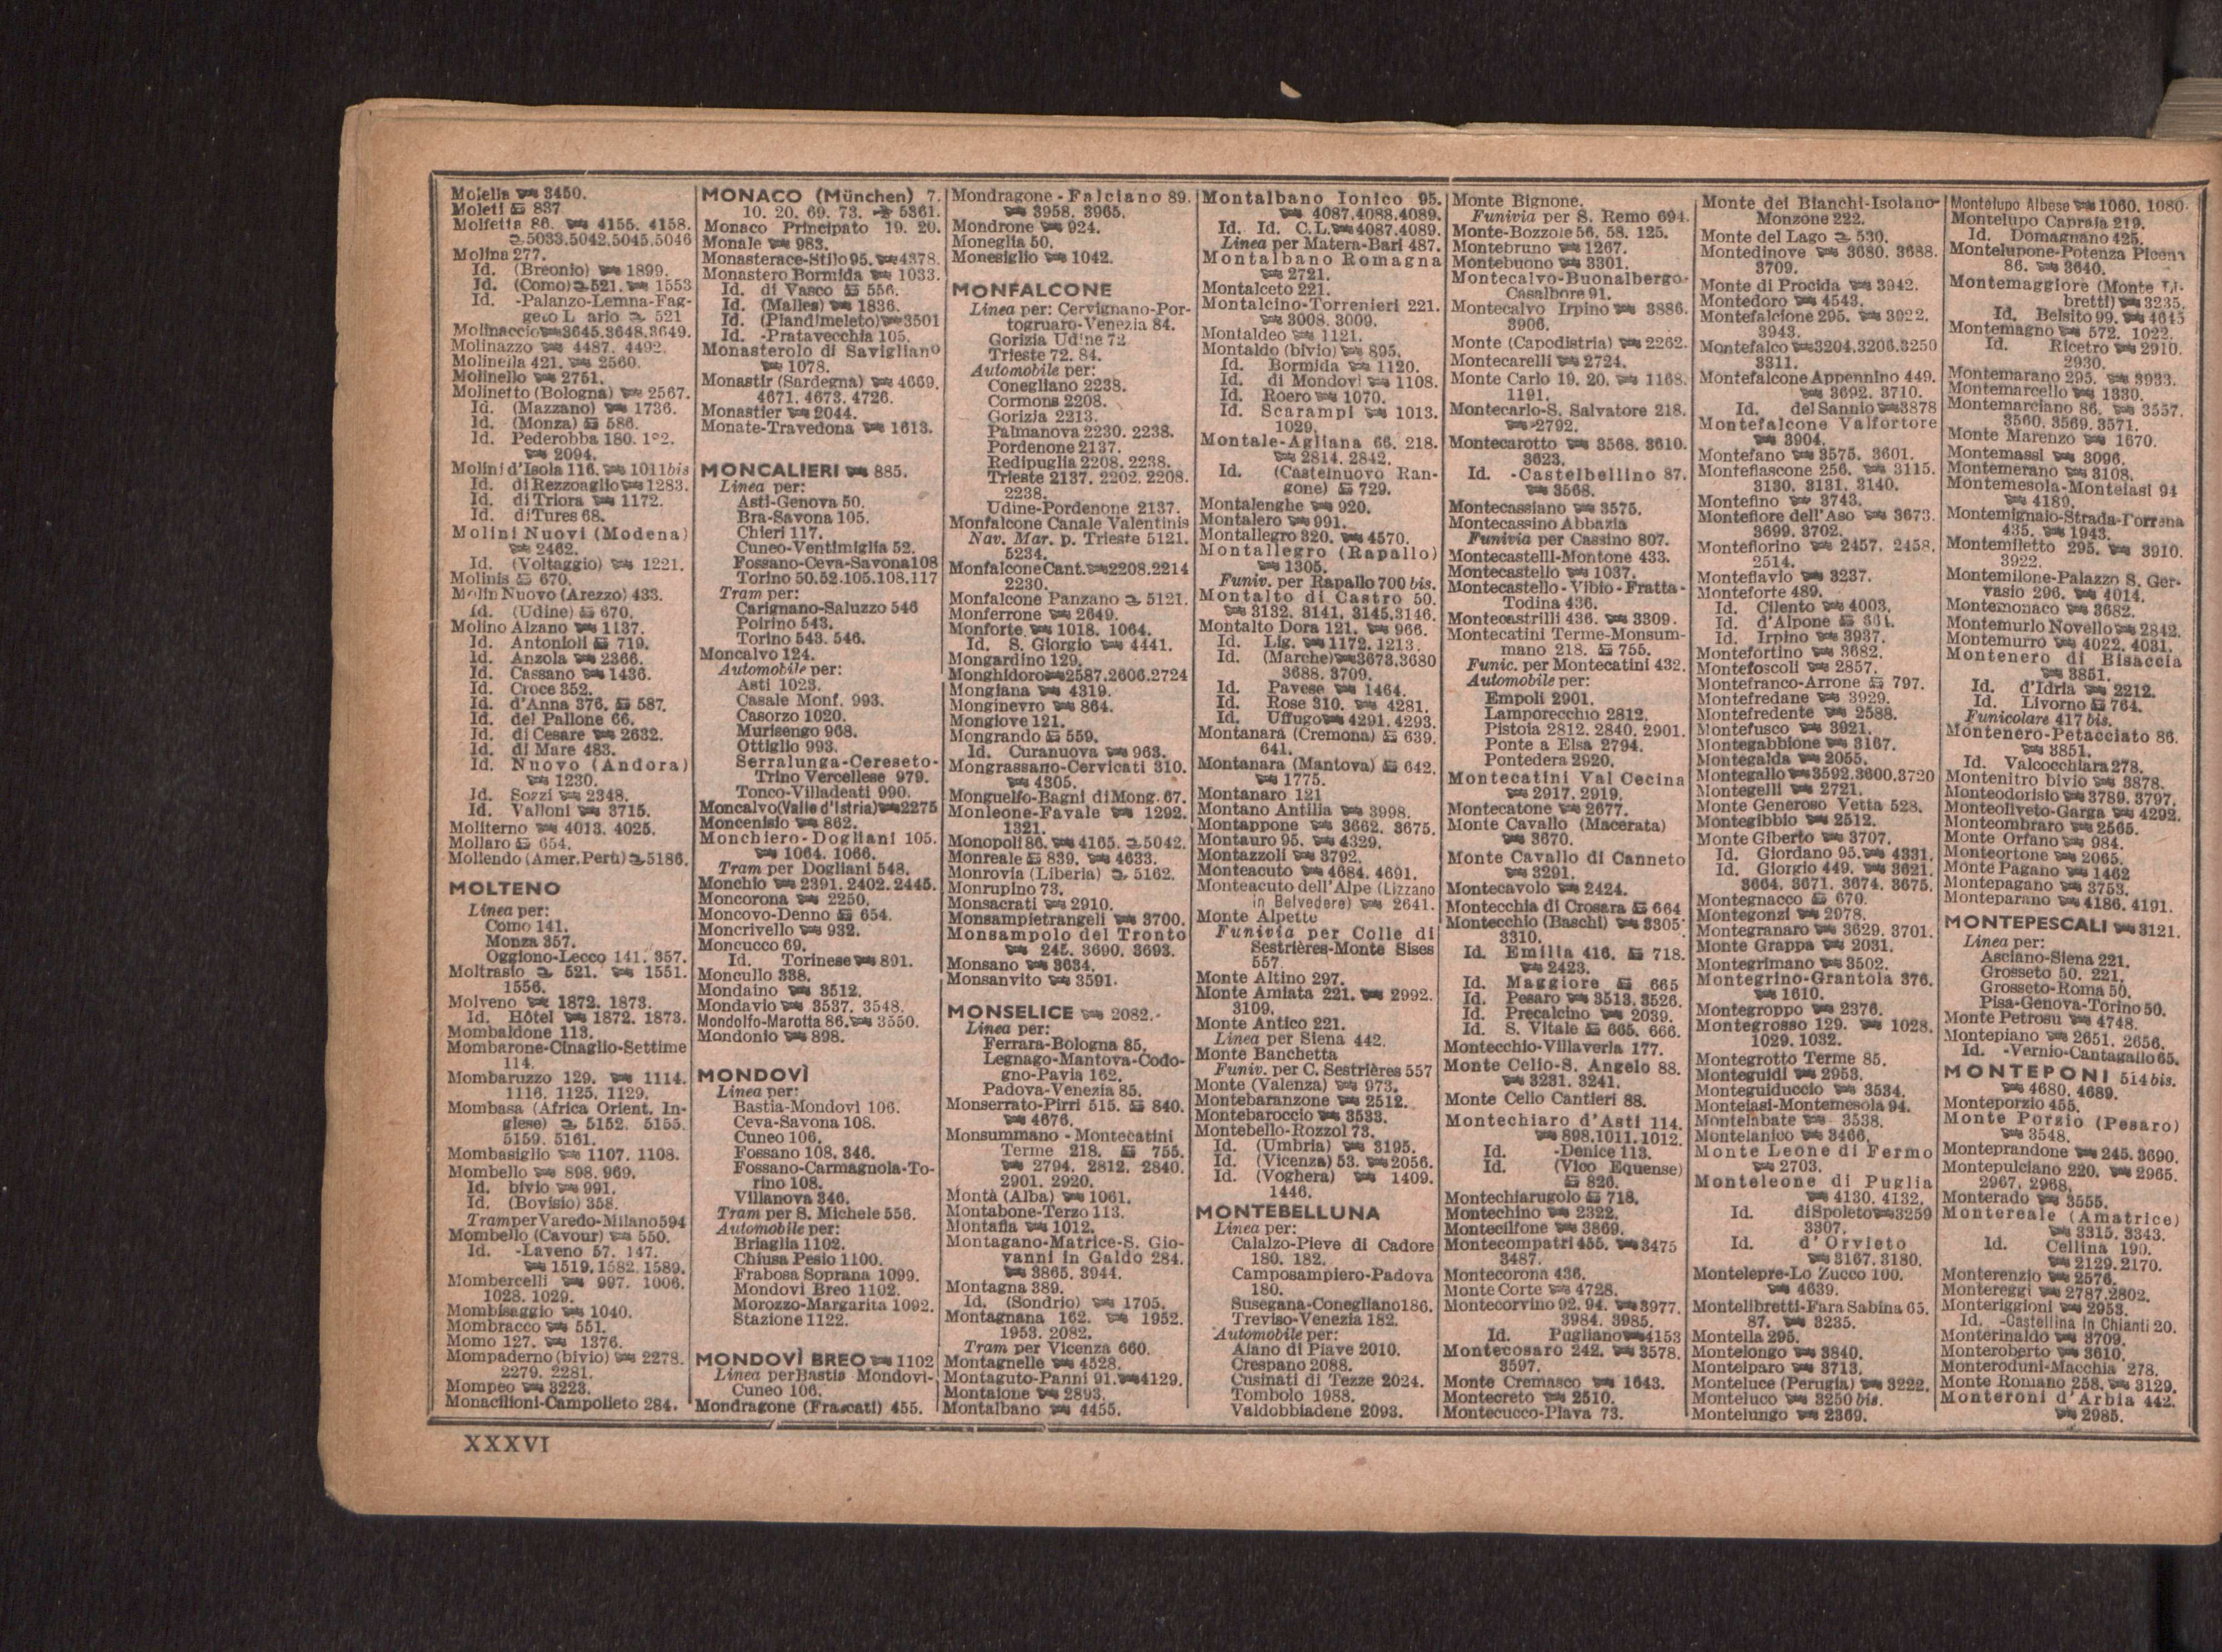 Molella 3450.
Moleti 837
Molfetta 86. 4155. 4158.
5033.5042.5045.5046
Molina 277.
Id. (Breonio) 1899.
Id. (Como) 521. 1553
Id. -Palanzo-Lemna-Fag-
geto L ario 521
Molinaccio 3645.3648.3649.
Molinazzo 4487. 4492.
Molinella 421. 2560.
Molinello 2751.
Molinetto (Bologna) 2567.
Id. (Mazzano) 1736.
Id. (Monza) 586.
Id. Pederobba 180. 1°2.
2094.
Molini d'Isola 116. 1011bis
Id. di Rezzoaglio 1283.
Id. di Triora 1172.
Id. di Tures 68.
Molini Nuovi (Modena)
2462.
Id. (Voltaggio) 1221.
Molinis 670.
Molin Nuovo (Arezzo) 433.
Id. (Udine) 670.
Molino Alzano 1137.
Id. Antonioli 719.
Id. Anzola 2366.
Id. Cassano 1436.
Id. Croce 352.
Id. d'Anna 376. 587.
Id. del Pallone 66.
Id. di Cesare 2632.
Id. di Mare 483.
Id. Nuovo (Andora)
1230.
Id. Sozzi 2348.
Id. Valloni 3715.
Moliterno 4013. 4025.
Mollaro 654.
Mollendo (Amer. Perù) 5186.
MOLTENO
Linea per:
Como 141.
Monza 357.
Oggiono-Lecco 141. 357.
Moltrasio 521. 1551.
1556.
Molveno 1872. 1873.
Id. Hôtel 1872. 1873.
Mombaldone 113.
Mombarone-Cinaglio-Settime
114.
Mombaruzzo 129. 1114.
1116. 1125. 1129.
Mombasa (Africa Orient. In-
glese) 5152. 5155.
5159. 5161.
Mombasiglio 1107. 1108.
Mombello 898. 969.
Id. bivio 991.
Id. (Bovisio) 358.
Tram per Varedo-Milano 594
Mombello (Cavour) 550.
Id. -Laveno 57. 147.
1519. 1582. 1589.
Mombercelli 997. 1006.
1028. 1029.
Mombisaggio 1040.
Mombracco 551.
Momo 127. 1376.
Mompaderno (bivio) 2278.
2279. 2281.
Mompeo 3223.
Monacilioni-Campolieto 284.
MONACO (München) 7.
10. 20. 69. 73. 5361.
Monaco Principato 19. 20.
Monale 983.
Monasterace-Stilo 95. 4378.
Monastero Bormida 1033.
Id. di Vasco 556.
Id. (Malles) 1836.
Id. (Piandimeleto) 3501
Id. -Pratavecchia 105.
Monasterolo di Savigliano
1078.
Monastir (Sardegna) 4669.
4671. 4673. 4726.
Monastier 2044.
Monate-Travedona 1613.
MONCALIERI 885.
Linea per:
Asti-Genova 50.
Bra-Savona 105.
Chieri 117.
Cuneo-Ventimiglia 52.
Fossano-Ceva-Savona 108
Torino 50.52.105.108.117
Tram per:
Carignano-Saluzzo 546
Poirino 543.
Torino 543. 546.
Moncalvo 124.
Automobile per:
Asti 1023.
Casale Monf. 993.
Casorzo 1020.
Murisengo 968.
Ottiglio 993.
Serralunga-Cereseto-
Trino Vercellese 979.
Tonco-Villadeati 990.
Moncalvo (Valle d'Istria) 2275
Moncenisio 862.
Monchiero-Dogliani 105.
1064. 1066.
Tram per Dogliani 548.
Monchio 2391. 2402. 2445.
Moncorona 2250.
Moncovo-Denno 654.
Moncrivello 932.
Moncucco 69.
Id. Torinese 891.
Moncullo 338.
Mondaino 3512.
Mondavio 3537. 3548.
Mondolfo-Marotta 86. 3550.
Mondonio 898.
MONDOVÌ
Linea per:
Bastia-Mondovì 106.
Ceva-Savona 108.
Cuneo 106.
Fossano 108. 346.
Fossano-Carmagnola-To-
rino 108.
Villanova 346.
Tram per S. Michele 556.
Automobile per:
Briaglia 1102.
Chiusa Pesio 1100.
Frabosa Soprana 1099.
Mondovì Breo 1102.
Morozzo-Margarita 1092.
Stazione 1122.
MONDOVÌ BREO 1102
Linea per Bastia Mondovì-
Cuneo 106.
Mondragone (Frascati) 455.
Mondragone-Falciano 89.
3958. 3965.
Mondrone 924.
Moneglia 50.
Monesiglio 1042.
MONFALCONE
Linea per: Cervignano-Por-
togruaro-Venezia 84.
Gorizia Udine 72
Trieste 72. 84.
Automobile per:
Conegliano 2238.
Cormons 2208.
Gorizia 2213.
Palmanova 2230. 2238.
Pordenone 2137.
Redipuglia 2208. 2238.
Trieste 2137. 2202. 2208.
2238.
Udine-Pordenone 2137.
Monfalcone Canale Valentinis
Nav. Mar. p. Trieste 5121.
5234.
Monfalcone Cant. 2208.2214
2230.
Monfalcone Panzano 5121.
Monferrone 2649.
Monforte 1018. 1064.
Id. S. Giorgio 4441.
Mongardino 129.
Monghidoro 2587.2606.2724
Mongiana 4319.
Monginevro 864.
Mongiove 121.
Mongrando 559.
Id. Curanuova 963.
Mongrassano-Cervicati 310.
4305.
Monguelfo-Bagni di Mong. 67.
Monleone-Favale 1292.
1321.
Monopoli 86. 4165. 5042.
Monreale 839. 4633.
Monrovia (Liberia) 5162.
Monrupino 73.
Monsacrati 2910.
Monsampietrangeli 3700.
Monsampolo del Tronto
245. 3690. 3693.
Monsano 3634.
Monsanvito 3591.
MONSELICE 2082.
Linea per:
Ferrara-Bologna 85.
Legnago-Mantova-Codo-
gno-Pavia 162.
Padova-Venezia 85.
Monserrato-Pirri 515. 840.
4676.
Monsummano-Montecatini
Terme 218. 755.
2794. 2812. 2840.
2901. 2920.
Montà (Alba) 1061.
Montabone-Terzo 113.
Montafia 1012.
Montagano-Matrice-S. Gio-
vanni in Galdo 284.
3865. 3944.
Montagna 389.
Id. (Sondrio) 1705.
Montagnana 162. 1952.
1953. 2082.
Tram per Vicenza 660.
Montagnelle 4528.
Montaguto-Panni 91. 4129.
Montaione 2893.
Montalbano 4455.
Montalbano Ionico 95.
4087.4088.4089.
Id. Id. C.L. 4087.4089.
Linea per Matera-Bari 487.
Montalbano Romagna
2721.
Montalceto 221.
Montalcino-Torrenieri 221.
3008. 3009.
Montaldeo 1121.
Montaldo (bivio) 895.
Id. Bormida 1120.
Id. di Mondovì 1108.
Id. Roero 1070.
Id. Scarampi 1013.
1029.
Montale-Agliana 66. 218.
2814. 2842.
Id. (Castelnuovo Ran-
gone) 729.
Montalenghe 920.
Montalero 991.
Montallegro 320. 4570.
Montallegro (Rapallo)
1305.
Funiv. per Rapallo 700 bis.
Montalto di Castro 50.
3132. 3141. 3145.3146.
Montalto Dora 121. 966.
Id. Lig. 1172. 1213.
Id. (Marche) 3673.3680
3688. 3709.
Id. Pavese 1464.
Id. Rose 310. 4281.
Id. Uffugo 4291. 4293.
Montanara (Cremona) 639.
641.
Montanara (Mantova) 642.
1775.
Montanaro 121
Montano Antilia 3998.
Montappone 3662. 3675.
Montauro 95. 4329.
Montazzoli 3792.
Monteacuto 4684. 4691.
Monteacuto dell'Alpe (Lizzano
in Belvedere) 2641.
Monte Alpette
Funivia per Colle di
Sestrières-Monte Sises
557
Monte Altino 297.
Monte Amiata 221. 2992.
3109.
Monte Antico 221.
Linea per Siena 442.
Monte Banchetta
Funiv. per C. Sestrières 557
Monte (Valenza) 973.
Montebaranzone 2512.
Montebaroccio 3533.
Montebello-Rozzol 73.
Id. (Umbria) 3195.
Id. (Vicenza) 53. 2056.
Id. (Voghera) 1409.
1446.
MONTEBELLUNA
Linea per:
Calalzo-Pieve di Cadore
180. 182.
Camposampiero-Padova
180.
Susegana-Conegliano 186.
Treviso-Venezia 182.
Automobile per:
Alano di Piave 2010.
Crespano 2088.
Cusinati di Tezze 2024.
Tombolo 1988.
Valdobbiadene 2093.
Monte Bignone.
Funivia per S. Remo 694.
Monte-Bozzole 56. 58. 125.
Montebruno 1267.
Montebuono 3301.
Montecalvo-Buonalbergo-
Casalbore 91.
Montecalvo Irpino 3886.
3906.
Monte (Capodistria) 2262.
Montecarelli 2724.
Monte Carlo 19. 20. 1168.
1191.
Montecarlo-S. Salvatore 218.
2792.
Montecarotto 3568. 3610.
3623.
Id. -Castelbellino 87.
3568.
Montecassiano 3575.
Montecassino Abbazia
Funivia per Cassino 807.
Montecastelli-Montone 433.
Montecastello 1037.
Montecastello-Vibio-Fratta-
Todina 436.
Montecastrilli 436. 3309.
Montecatini Terme-Monsum-
mano 218. 755.
Funic. per Montecatini 432.
Automobile per:
Empoli 2901.
Lamporecchio 2812.
Pistoia 2812. 2840. 2901.
Ponte a Elsa 2794.
Pontedera 2920.
Montecatini Val Cecina
2917. 2919.
Montecatone 2677.
Monte Cavallo (Macerata)
3670.
Monte Cavallo di Canneto
3291.
Montecavolo 2424.
Montecchia di Crosara 664
Montecchio (Baschi) 3305
3310.
Id. Emilia 416. 718.
2423.
Id. Maggiore 665
Id. Pesaro 3513. 3526.
Id. Precalcino 2039.
Id. S. Vitale 665. 666.
Montecchio-Villaverla 177.
Monte Celio-S. Angelo 88.
3231. 3241.
Monte Celio Cantieri 88.
Montechiaro d'Asti 114.
898.1011.1012.
Id. -Denice 113.
Id. (Vico Equense)
826.
Montechiarugolo 718.
Montechino 2322.
Montecilfone 3869.
Montecompatri 455. 3475
3487.
Montecorona 436.
Monte Corte 4728.
Montecorvino 92. 94. 3977.
3984. 3985.
Id. Pugliano 4153
Montecosaro 242. 3578.
3597.
Monte Cremasco 1643.
Montecreto 2510.
Montecucco-Piava 73.
Monte dei Bianchi-Isolano-
Monzone 222.
Monte del Lago 530.
Montedinove 3680. 3688.
3709.
Monte di Procida 3942.
Montedoro 4543.
Montefalcione 295. 3922.
3943.
Montefalco 3204.3206.3250
3311.
Montefalcone Appennino 449.
3692. 3710.
Id. del Sannio 3878
Montefalcone Valfortore
3904.
Montefano 3575. 3601.
Montefiascone 256. 3115.
3130. 3131. 3140.
Montefino 3743.
Montefiore dell'Aso 3673.
3699. 3702.
Montefiorino 2457. 2458.
2514.
Monteflavio 3237.
Monteforte 489.
Id. Cilento 4003.
Id. d'Alpone
Id. Irpino 3937.
Montefortino 3682.
Montefoscoli 2857.
Montefranco-Arrone 797.
Montefredane 3929.
Montefredente 2588.
Montefusco 3921.
Montegabbione 3167.
Montegalda 2055.
Montegallo 3592.3600.3720
Montegelli 2721.
Monte Generoso Vetta 528.
Montegibbio 2512.
Monte Giberto 3707.
Id. Giordano 95. 4331.
Id. Giorgio 449. 3621.
3664. 3671. 3674. 3675.
Montegnacco 670.
Montegonzi 2978.
Montegranaro 3629. 3701.
Monte Grappa 2031.
Montegrimano 3502.
Montegrino-Grantola 376.
1610.
Montegroppo 2376.
Montegrosso 129. 1028.
1029. 1032.
Montegrotto Terme 85.
Monteguidi 2953.
Monteguiduccio 3534.
Monteiasi-Montemesola 94.
Montelabate 3538.
Montelanico 3466.
Monte Leone di Fermo
2703.
Monteleone di Puglia
4130. 4132.
Id. di Spoleto 3259
3307.
Id. d'Orvieto
3167. 3180.
Montelepre-Lo Zucco 100.
4639.
Montelibretti-Fara Sabina 65.
87. 3235.
Montella 295.
Montelongo 3840.
Monteiparo 3713.
Monteluce (Perugia) 3222.
Monteluco 3250 bis.
Montelungo 2369.
Montelupo Albese 1060. 1080.
Montelupo Capraia 219.
Id. Domagnano 425.
Montelupone-Potenza Picena
86. 3640.
Montemaggiore (Monte Li-
bretti) 3235.
Id. Belsito 99. 4645
Montemagno 572. 1022.
Id. Ricetro 2910.
2930.
Montemarano 295. 3933.
Montemarcello 1330.
Montemarciano 86. 3557.
3560. 3569. 3571.
Monte Marenzo 1670.
Montemassi 3096.
Montemerano 3108.
Montemesola-Monteiasi 94
4189.
Montemignaio-Strada-Torrena
435. 1943.
Montemiletto 295. 3910.
3922.
Montemilone-Palazzo S. Ger-
vasio 296. 4014.
Montemonaco 3682.
Montemurlo Novello 2842.
Montemurro 4022. 4031.
Montenero di Bisaccia
3851.
Id. d'Idria 2212.
Id. Livorno 764.
Funicolare 417 bis.
Montenero-Petacciato 86.
3851.
Id. Valcocchiara 278.
Montenitro bivio 3878.
Monteodorisio 3789. 3797.
Monteoliveto-Garga 4292.
Monteombraro 2565.
Monte Orfano 984.
Monteortone 2065.
Monte Pagano 1462
Montepagano 3753.
Monteparano 4186. 4191.
MONTEPESCALI 3121.
Linea per:
Asciano-Siena 221.
Grosseto 50. 221.
Grosseto-Roma 50.
Pisa-Genova-Torino 50.
Monte Petrosu 4748.
Montepiano 2651. 2656.
Id. -Vernio-Cantagallo 65.
MONTEPONI 514 bis.
4680. 4689.
Monteporzio 455.
Monte Porzio (Pesaro)
3548.
Monteprandone 245. 3690.
Montepulciano 220. 2965.
2967. 2968.
Monterado 3555.
Montereale (Amatrice)
3315. 3343.
Id. Cellina 190.
2129. 2170.
Monterenzio 2576.
Montereggi 2787.2802.
Monteriggioni 2953.
Id. -Castellina in Chianti 20.
Monterinaldo 3709.
Monteroberto 3610.
Monteroduni-Macchia 278.
Monte Romano 258. 3129.
Monteroni d'Arbia 442.
2985.
XXXVI